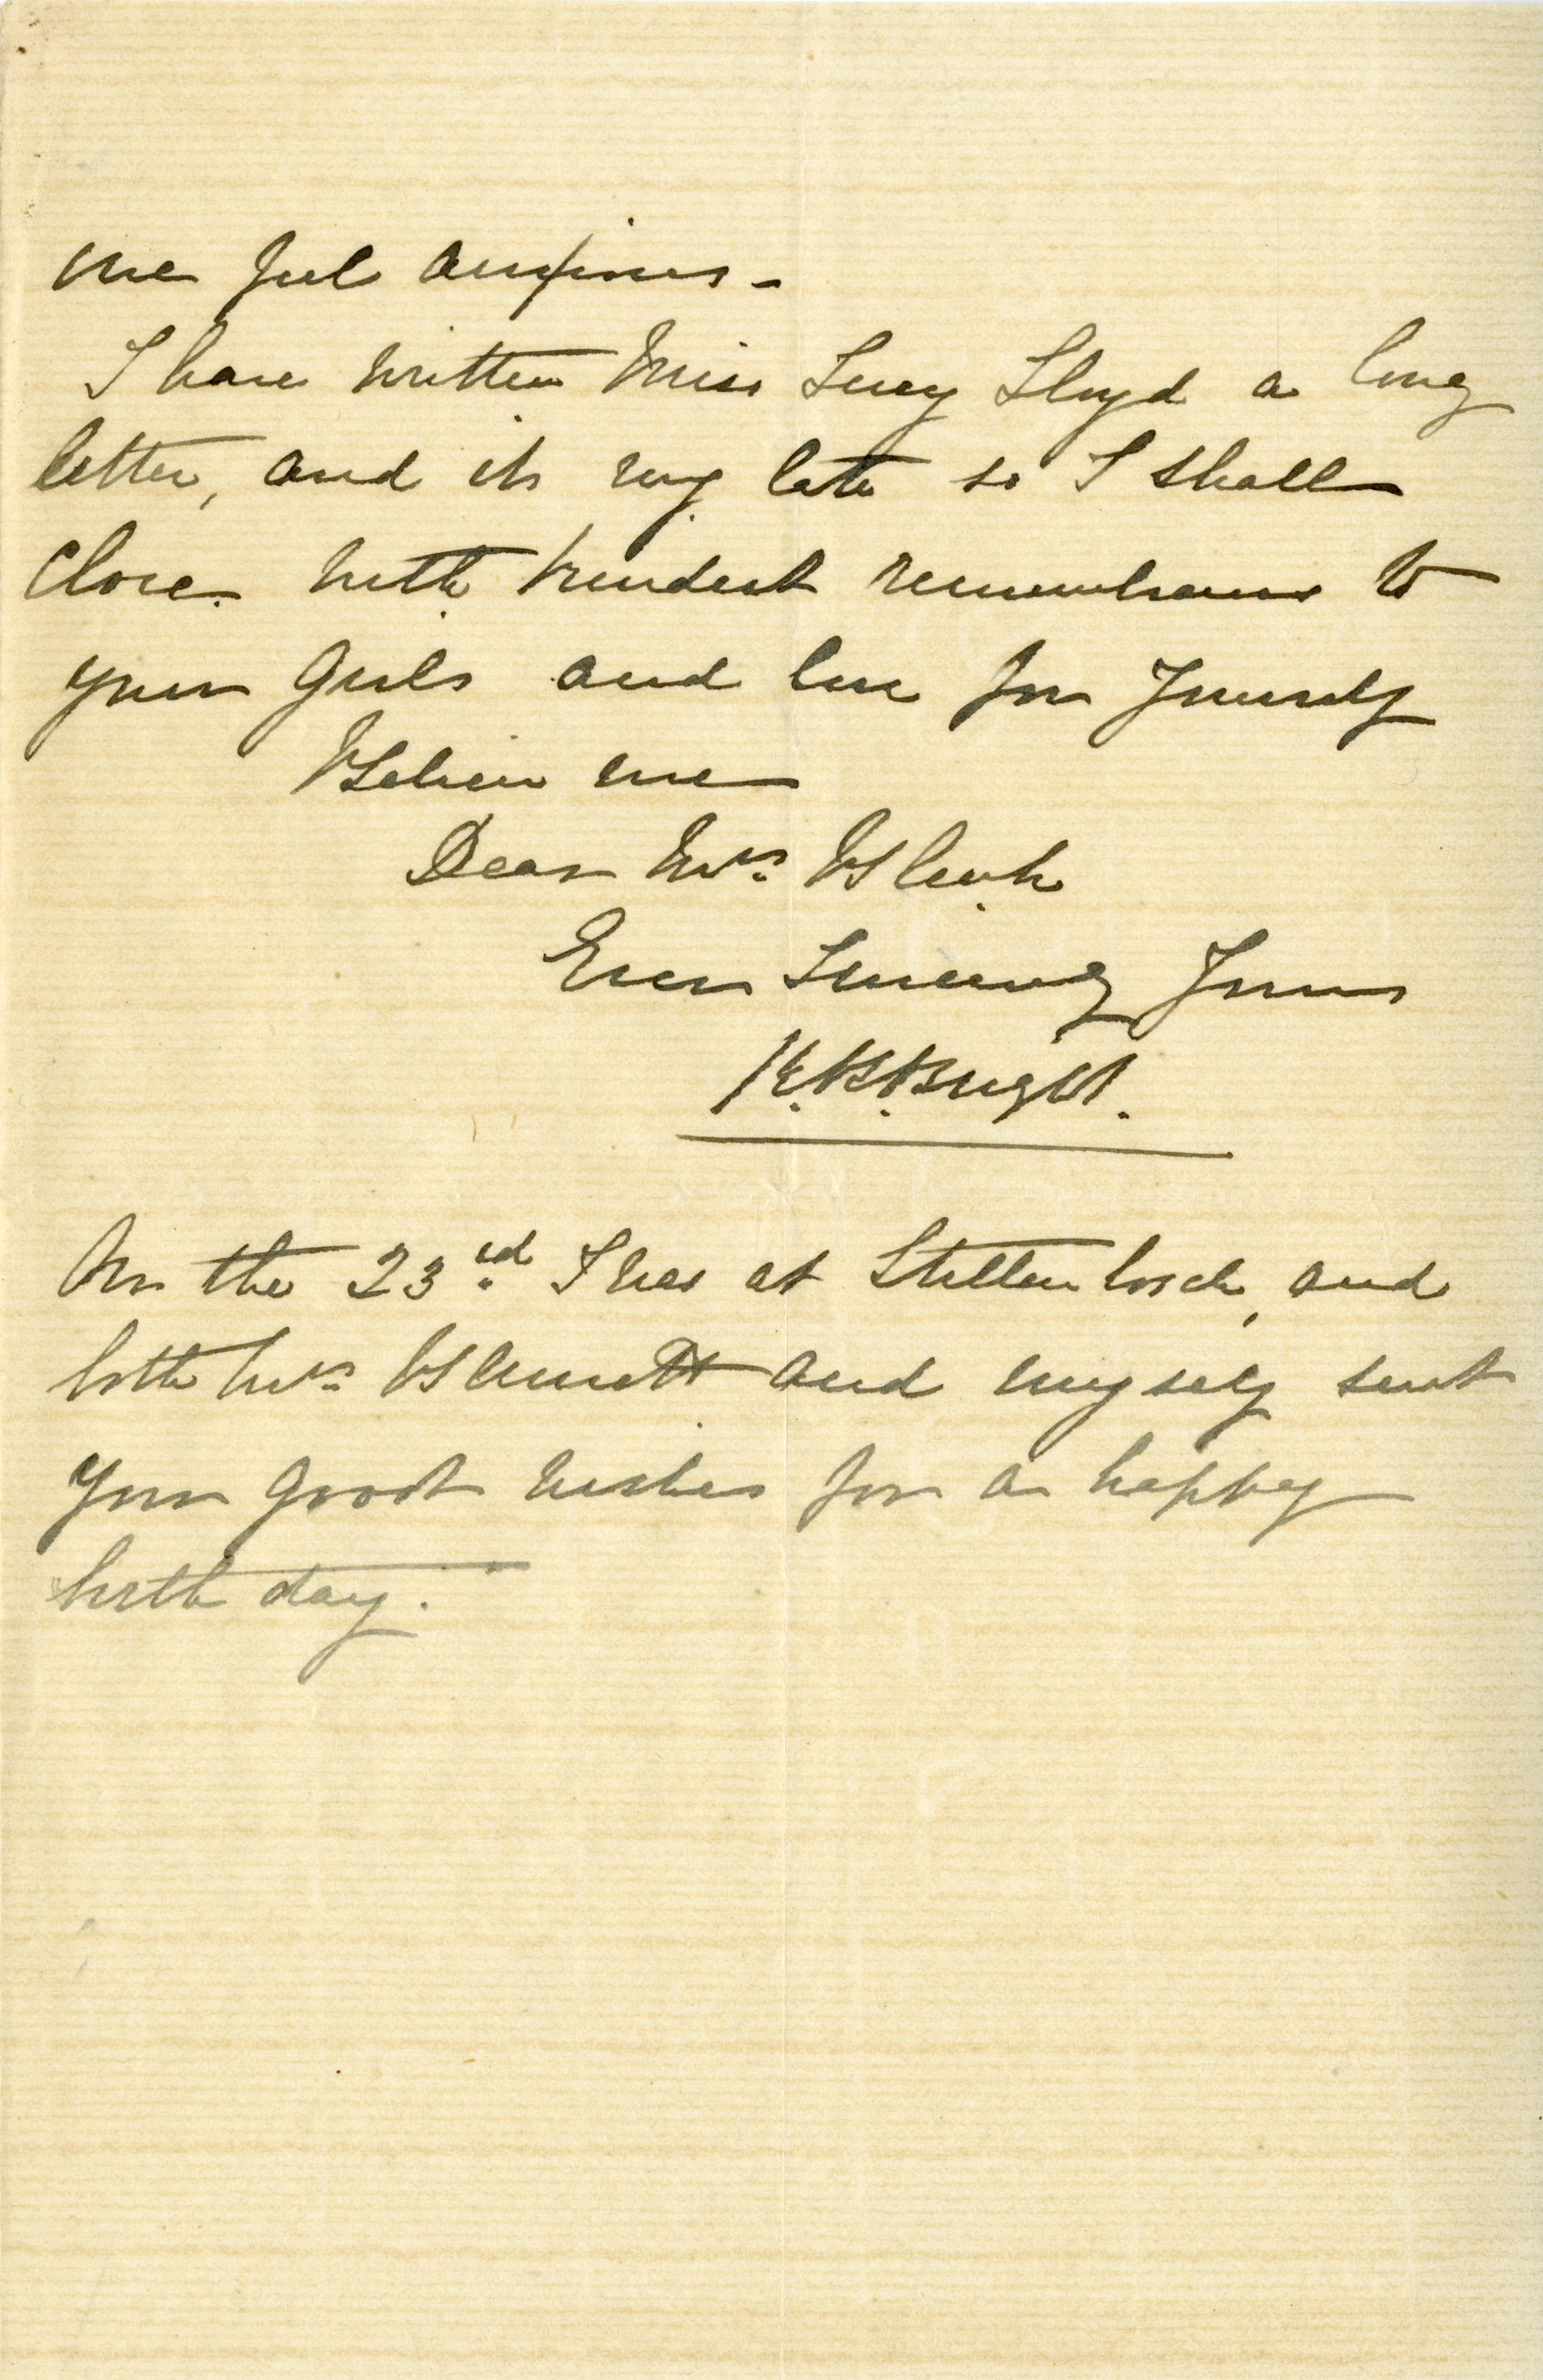 me feel anxious -
I have written Miss Lucy Lloyd a long
letter, and its very late so I shall
close. With kindest remembrances to
your Girls and love for Yourself
Believe me
Dear Mrs. Bleek
Ever Sincerely Yours
K.B.Bright.
On the 23rd. I was at Stellenbosch, and
both Mrs. and myself sent
you good wishes for a happy
birth day.